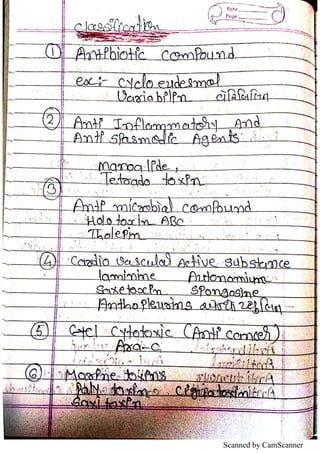 Date
Page
Classification
① Antibiotic compound
ex:- Cyclo eudesmol
Variabilin વેરિબિલિન
② Anti Inflammatory And
Anti spasmodic Agents
manoalide,
Tetrado toxin
③
Anti microbial compound
Holotoxin ABC
Tholepin
④ Cardio vascular Active substance
laminine Autonomium
Saxetoxin Spongosine
Anthopleurins
⑤ Cytotoxic (Anti cancer)
Ara-C
⑥ Marine toxins
Paly toxin Ciguatoxin
Saxitoxin
Scanned by CamScanner